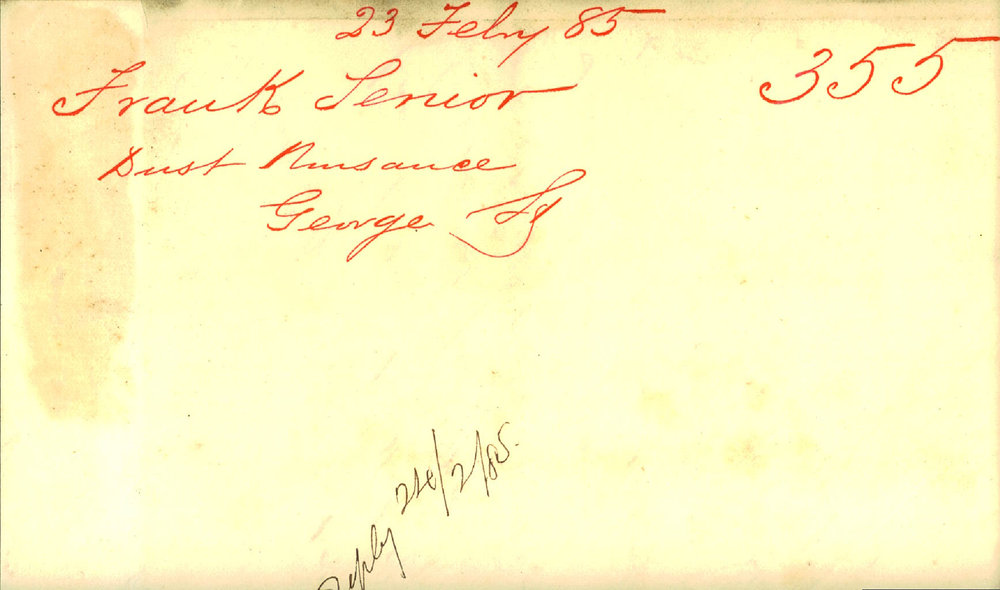 23 Feby 85
355
Frank Senior
Dust Nuisance
George St
Reply 24/2/85.